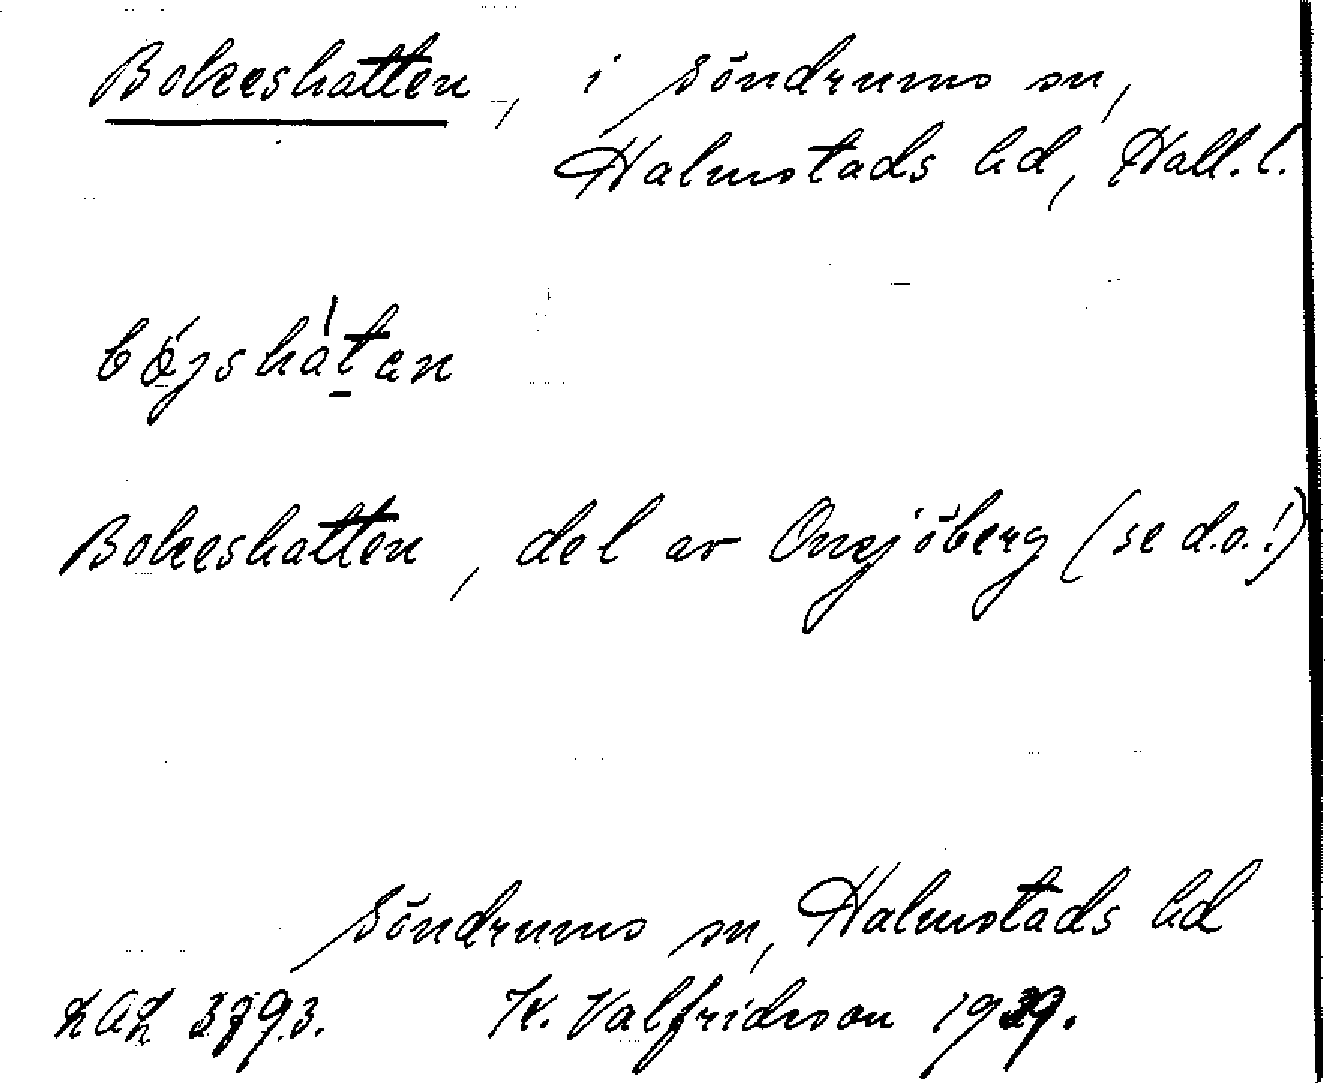 Bokeshatten, i Söndrums sn,
Halmstads hd, Hall. l.
Bokeshatten, del av Onsjöberg (se d.o.!)
Söndrums sn, Halmstads hd
LAL 3793. K. Valfridsson 1939.